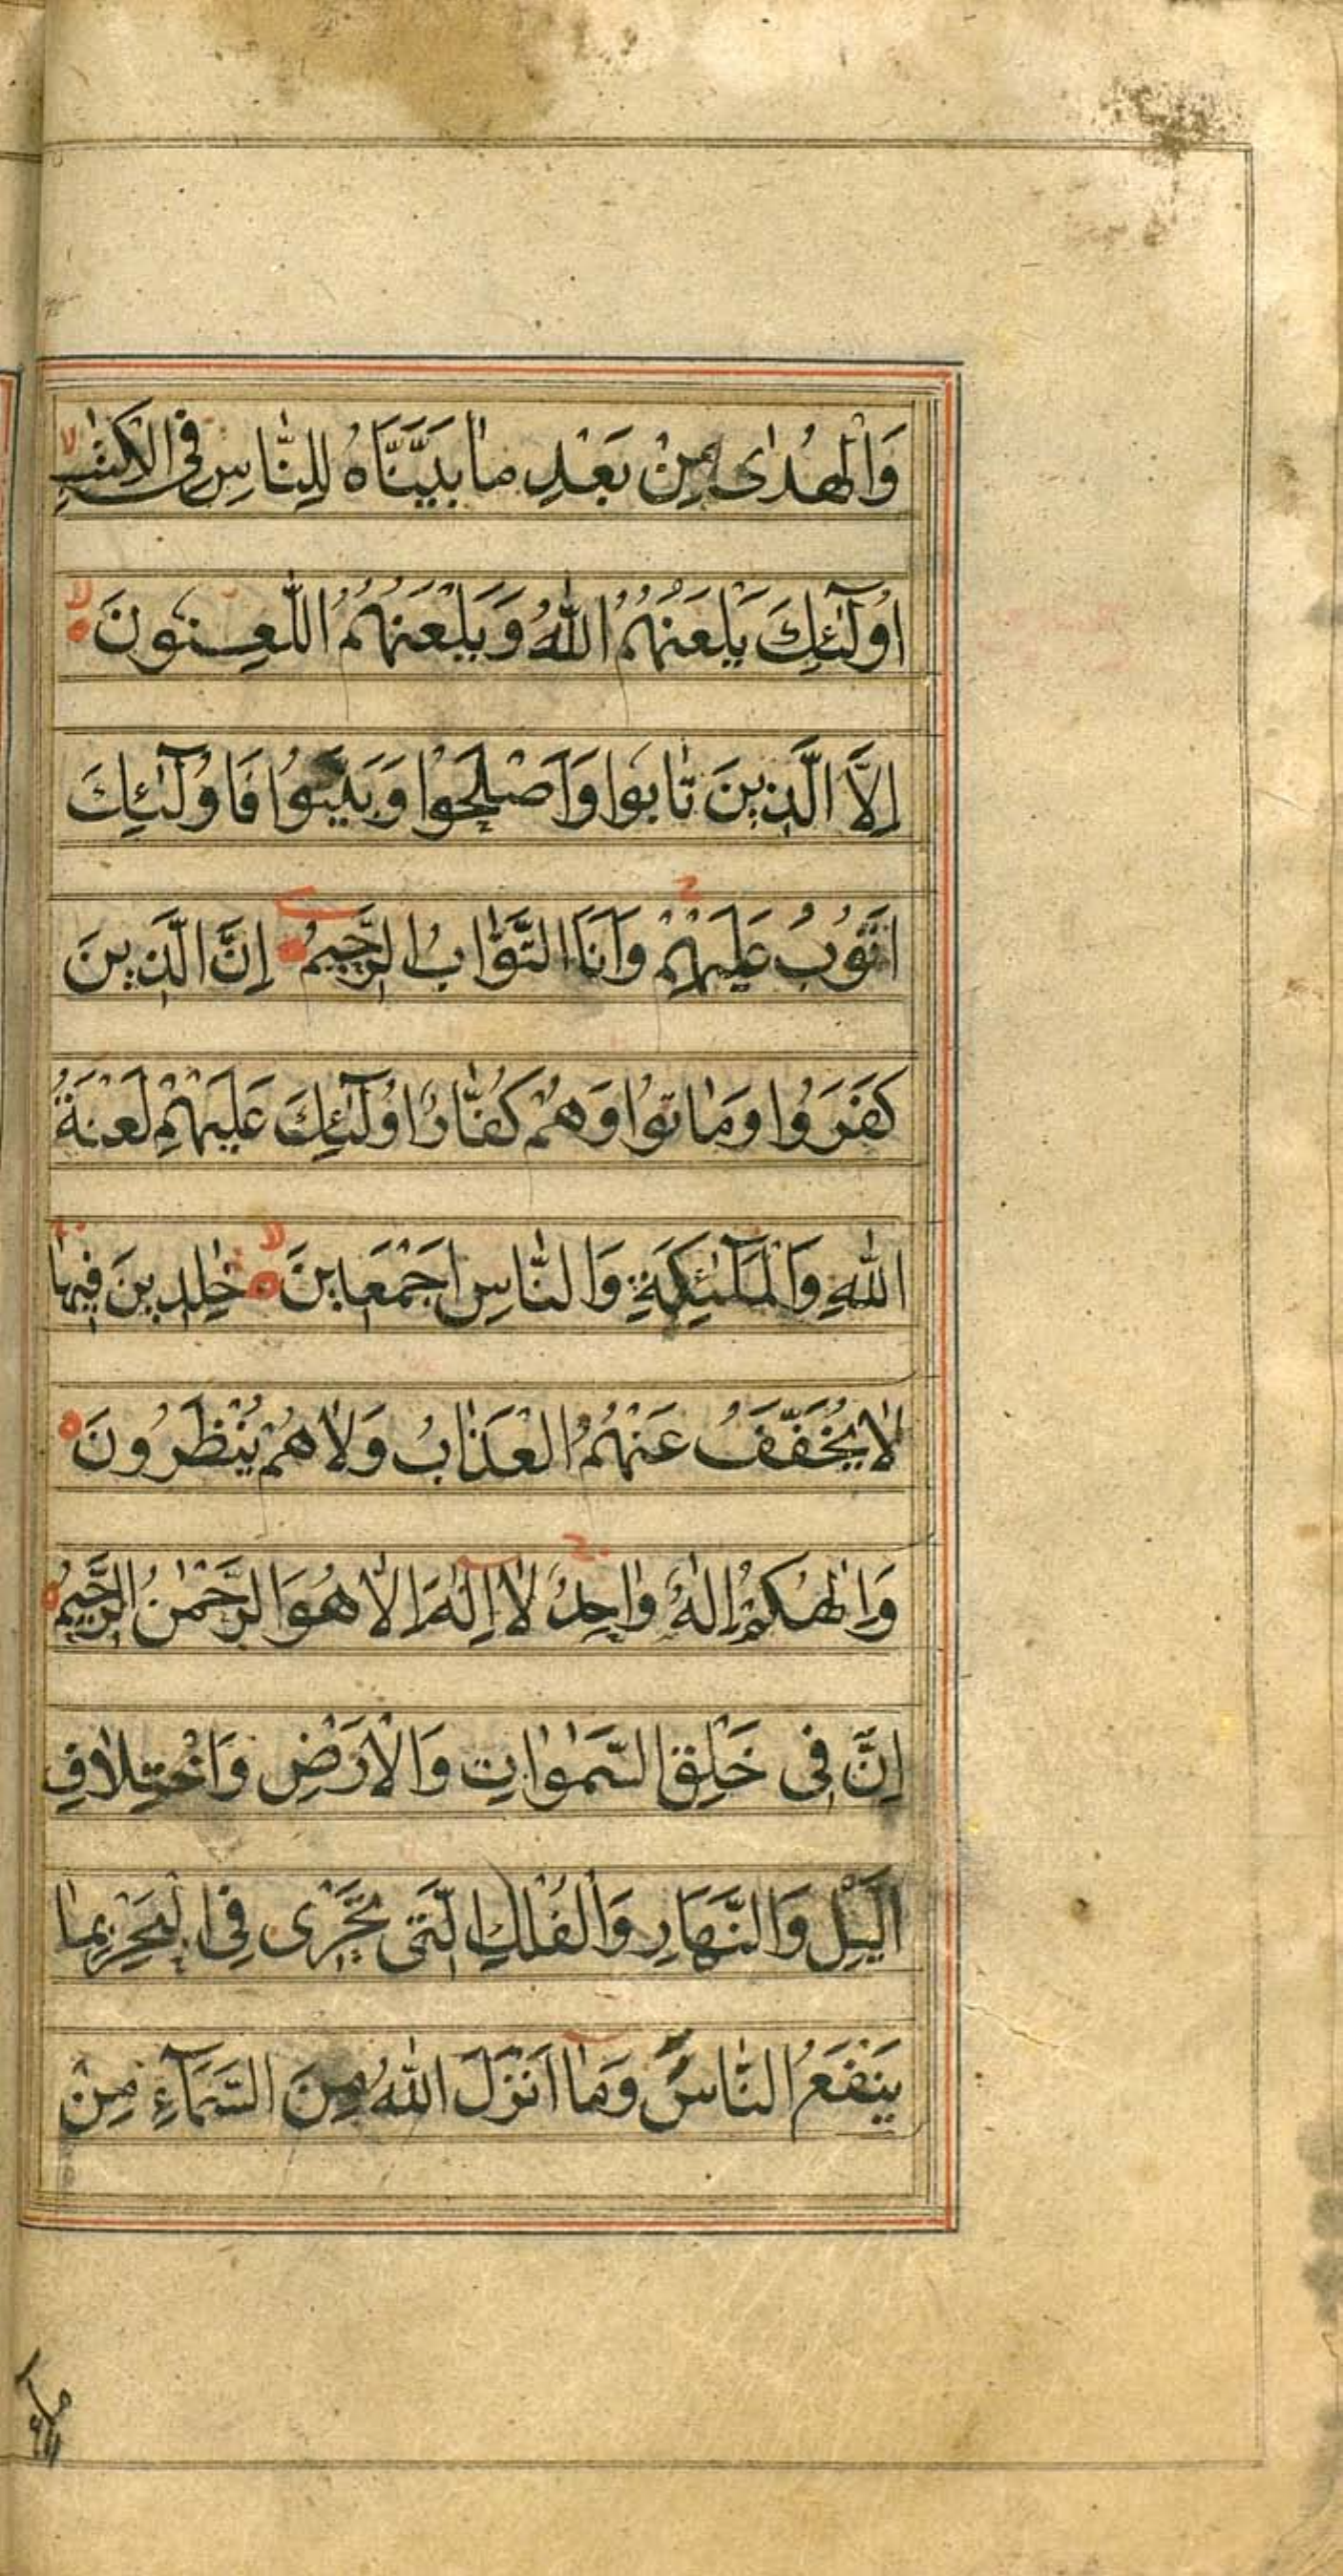 وَالْهُدٰى مِنْ بَعْدِ مٰا بَيَّنَّاهُ لِلنّٰاسِ فِى الْكِتٰبِ لا
اُولٰٓئِكَ يَلْعَنُهُمُ اللّٰهُ وَيَلْعَنُهُمُ اللّٰعِنُونَ لا
اِلَّا الَّذِينَ تٰابُوا وَاَصْلَحُوا وَبَيَّنُوا فَاُولٰٓئِكَ
اَتُوبُ عَلَيْهِمْ وَاَنَا التَّوّٰابُ الرَّحِيمُ اِنَّ الَّذِينَ
كَفَرُوا وَمٰاتُوا وَهُمْ كُفّٰارٌ اُولٰٓئِكَ عَلَيْهِمْ لَعْنَةُ
اللّٰهِ وَالْمَلٰٓئِكَةِ وَالنّٰاسِ اَجْمَعِينَ لا خٰلِدِينَ فِيهٰا
لٰا يُخَفَّفُ عَنْهُمُ الْعَذٰابُ وَلٰا هُمْ يُنْظَرُونَ
وَاِلٰهُكُمْ اِلٰهٌ وٰاحِدٌ لٰا اِلٰهَ اِلّٰا هُوَ الرَّحْمٰنُ الرَّحِيمُ
اِنَّ فِى خَلْقِ السَّمٰوٰاتِ وَالْاَرْضِ وَاخْتِلٰافِ
الَّيْلِ وَالنَّهَارِ وَالْفُلْكِ الَّتِى تَجْرِى فِى الْبَحْرِ بِمٰا
يَنْفَعُ النّٰاسَ وَمٰا اَنْزَلَ اللّٰهُ مِنَ السَّمَآءِ مِنْ